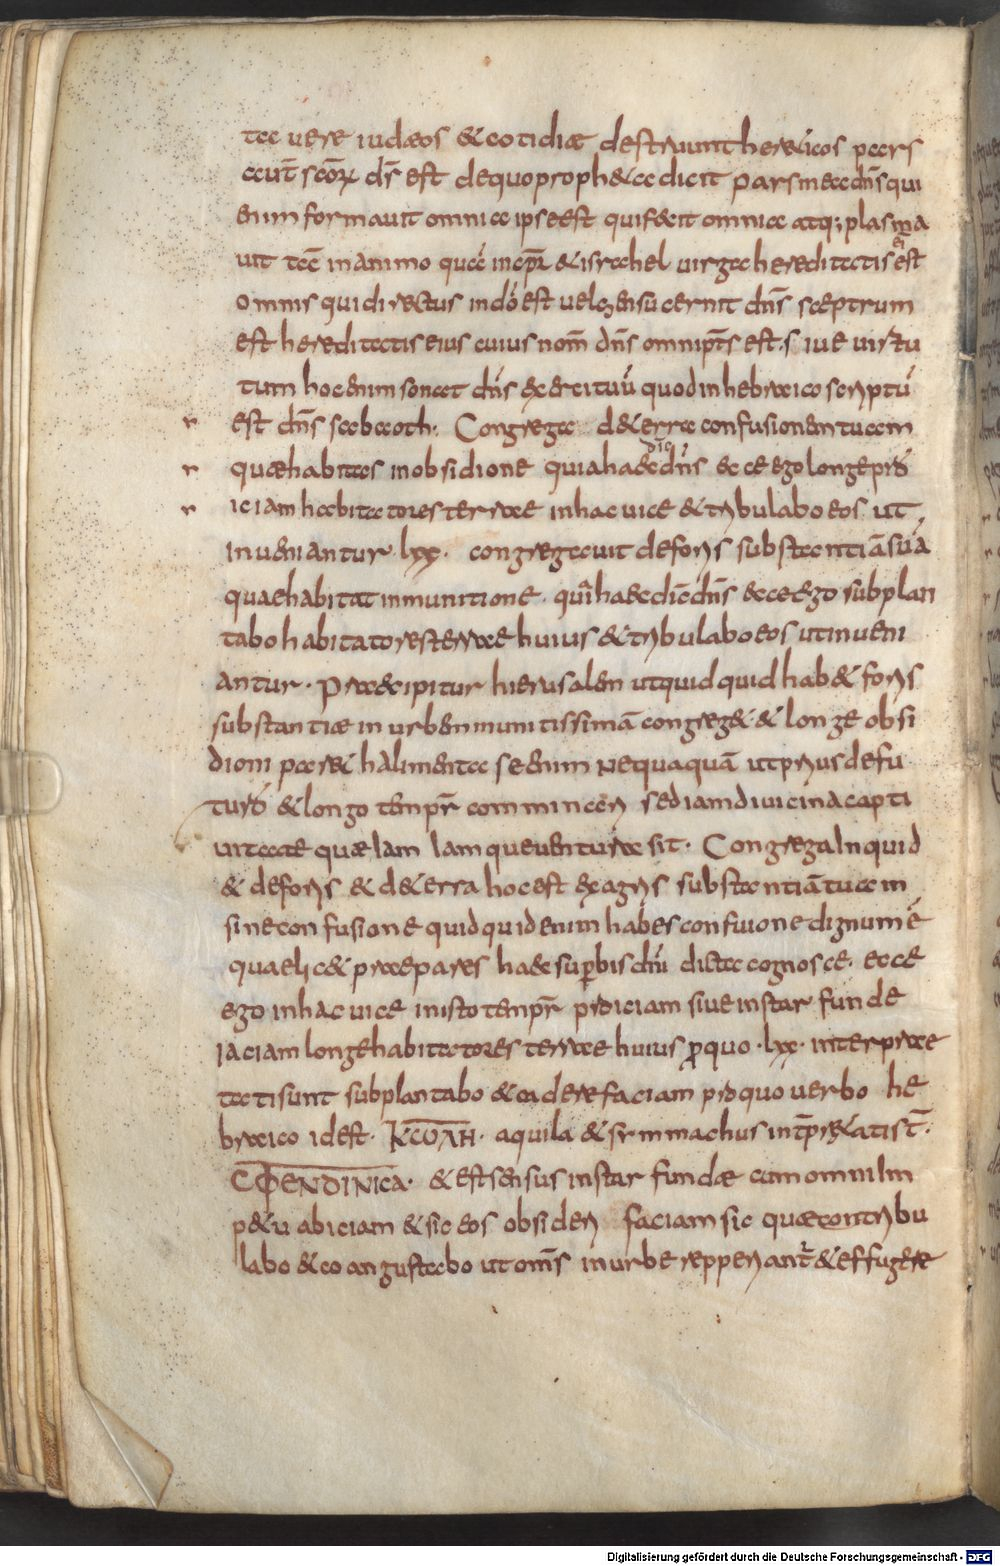 tae uere iudæos & cotidiæ destruunt her&icos pars
aut̄ sc̄oꝝ d̄s est de quo proph&a dicit pars mea dn̄s qui
enim formauit omnia ipse est qui fecit omnia atq; plasma
uit
omnis qui directus in dō est uel censu cernit dn̄s sceptrum
est hereditatis eius cuius nom̄ dn̄s omnipt̄s est siue uirtu
tum hoc enim sonat dn̄s exercituū quod in hebraico scriptū
est dn̄s sabaoth. Congrega de terra confusionem tuam
quæ habitas in obsidione quia haec dic̄ dn̄s ecce ego longe pro
iciam habitatores terrae in hac uice & tribulabo eos ut
inueniantur. lxx. congregauit deforis substantiā suā
quae habitat in munitione. quia haec dic̄ dn̄s ecce ego subplan
tabo habitatores terrae huius & tribulabo eos ut inueni
antur. Praecipitur hierusalem ut quidquid hab& foris
substantiæ in urbem munitissimā congreg& & longe obsi
dioni par& halimenta se enim nequaquā ut prius defu
turō & longo tempr̄ comminari sed iam de uicina capti
uitate quæ iam iamque uentura sit. Congrega inquid
& deforis & de terra hoc est ex agris substantiā tuam
sine confusione quidquid enim habes confusione dignum ē
quae elic& praepares haec superbis dn̄i dicta cognosce. ecce
ego in hac uice in isto tempr̄ proiciam siue instar funde
iaciam longe habitatores terrae huius pro quo lxx. interprae
tati sunt subplantabo & cadere faciam pro quo uerbo he
braico id est. KCOΛH. aquila & symmachus intpr&ati st̄.
CΦENDINICA. & est sensus instar fundæ cum omni im
p&u abiciam & sic eos obsideri faciam sic quæ contribu
labo & coangustabo ut omn̄s in urbe repperiant̄ & effugere